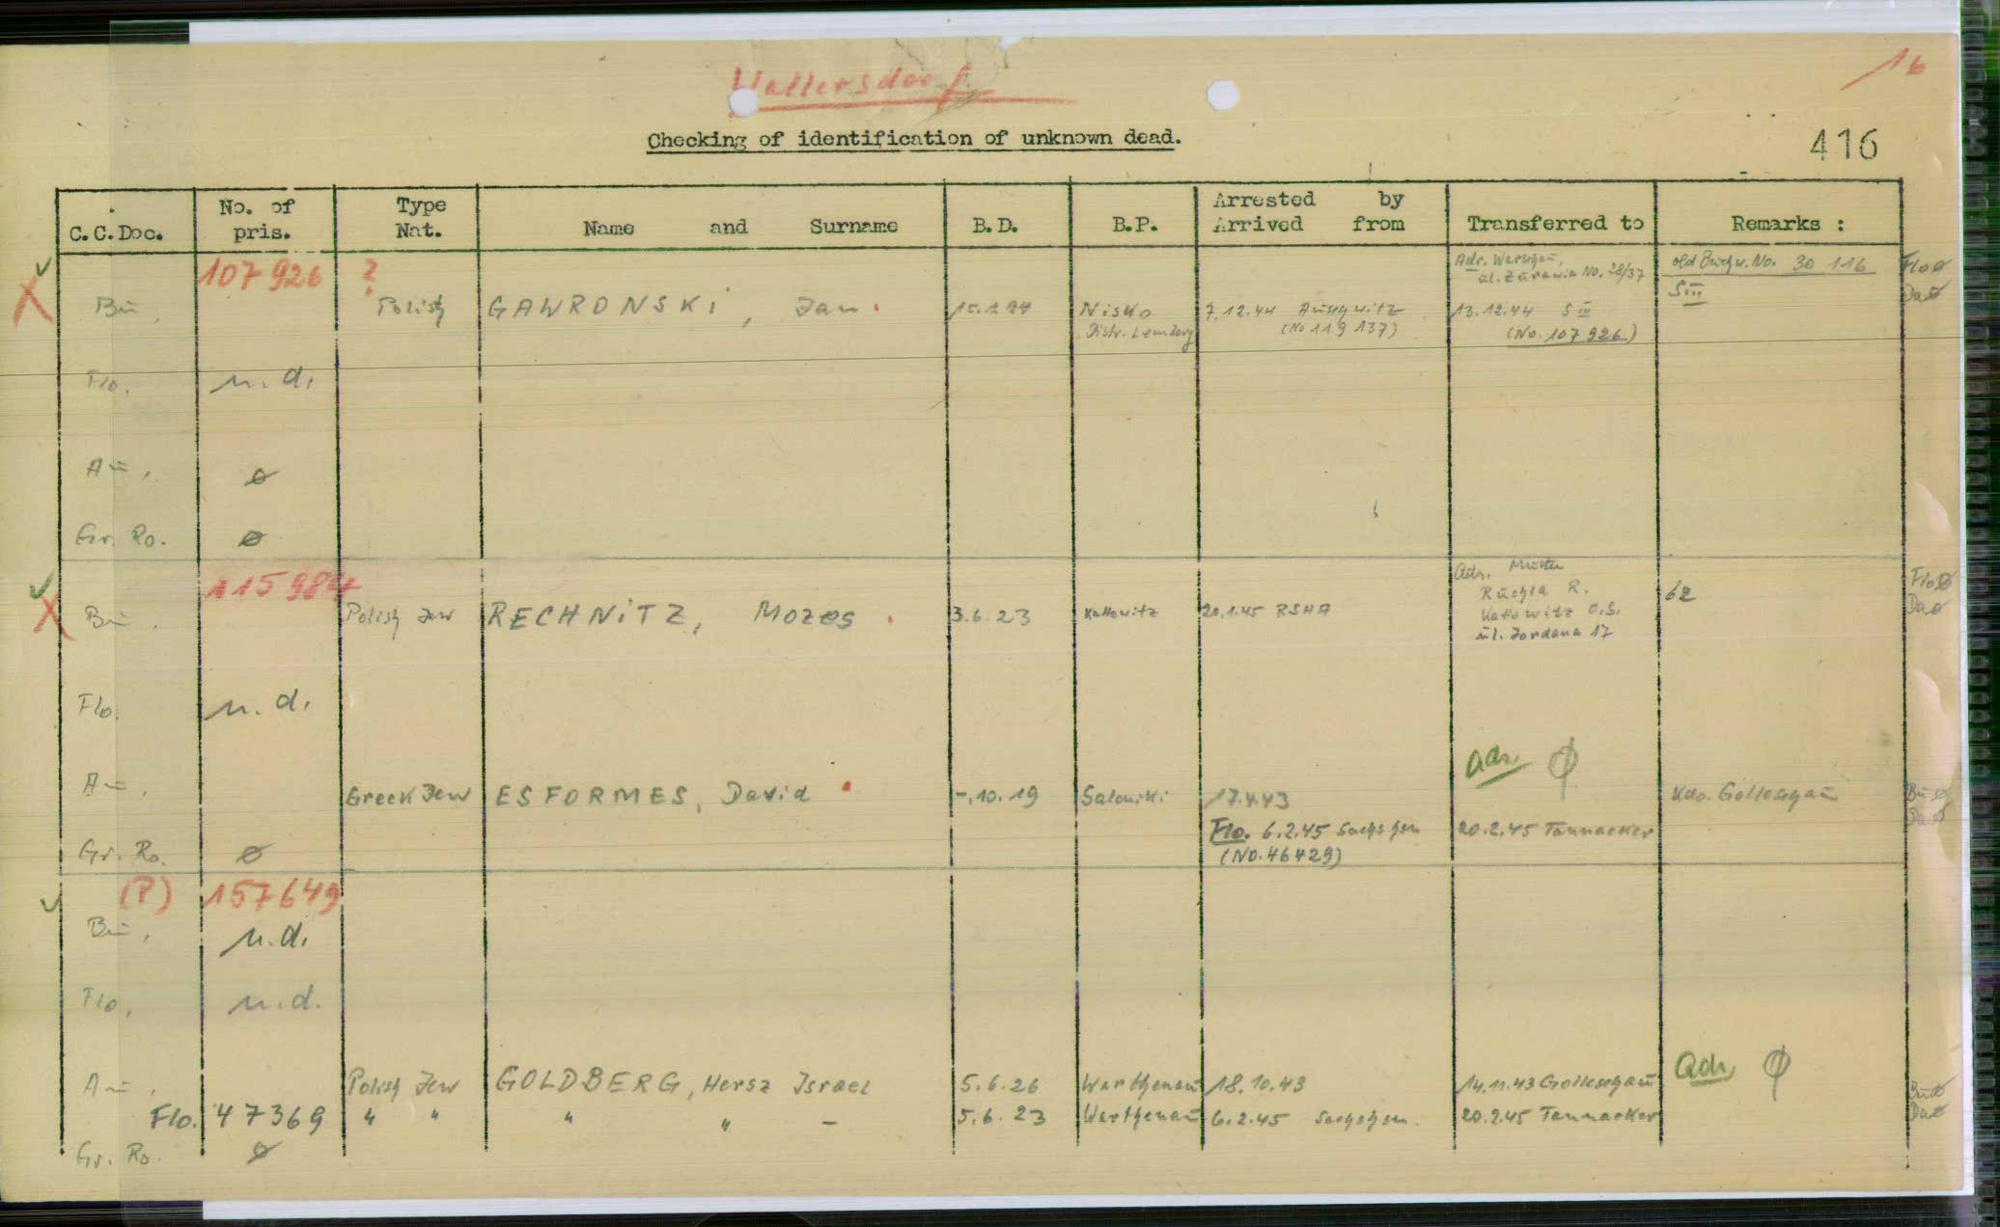 Wallersdorf
16
Checking of identification of unknown dead.
416
C.C.Doc.
No. of pris.
Type Nat.
Name and Surname
B.D.
B.P.
Arrested by
Arrived from
Transferred to
Remarks :
107926 ?
Adr. Warschau,
No. 28/37
old Buchw. No. 30 116
Flo ø
Bu. Polish GAWRONSKI, Jan. Nisko 7.12.44 Auschwitz 13.12.44 S III
S III
Da ø
Distr. Lemberg (No 119 137) (No. 107 926)
Flo. n.d.
Au. ø
Gr. Ro. ø
115984
Adr. Mutter
Flo ø
Ruchla R.
62
Bu. Polish Jew RECHNITZ, Mozes. 3.6.23 Kattowitz 20.1.45 RSHA Katowitz O.S.
Da ø
ul. Jordana 17
Flo. n.d.
Adr. ϕ
Au. Greek Jew ESFORMES, David -.10.19 Saloniki 17.4.43 Kdo. Golleschau Bu ø
Da ø
Flo. 6.2.45 Sachshsn 20.2.45 Tannacker
Gr. Ro. ø (No. 46429)
(P) 157649
Bu. n.d.
Flo. n.d.
Adr. ϕ
Au. Polish Jew GOLDBERG, Hersz Israel 5.6.26 Warthenau 18.10.43 14.11.43 Golleschau Bu ø
Flo. 47369 " " " " - 5.6.23 Warthenau 6.2.45 Sachshsn. 20.2.45 Tannacker Da ø
Gr. Ro. ø